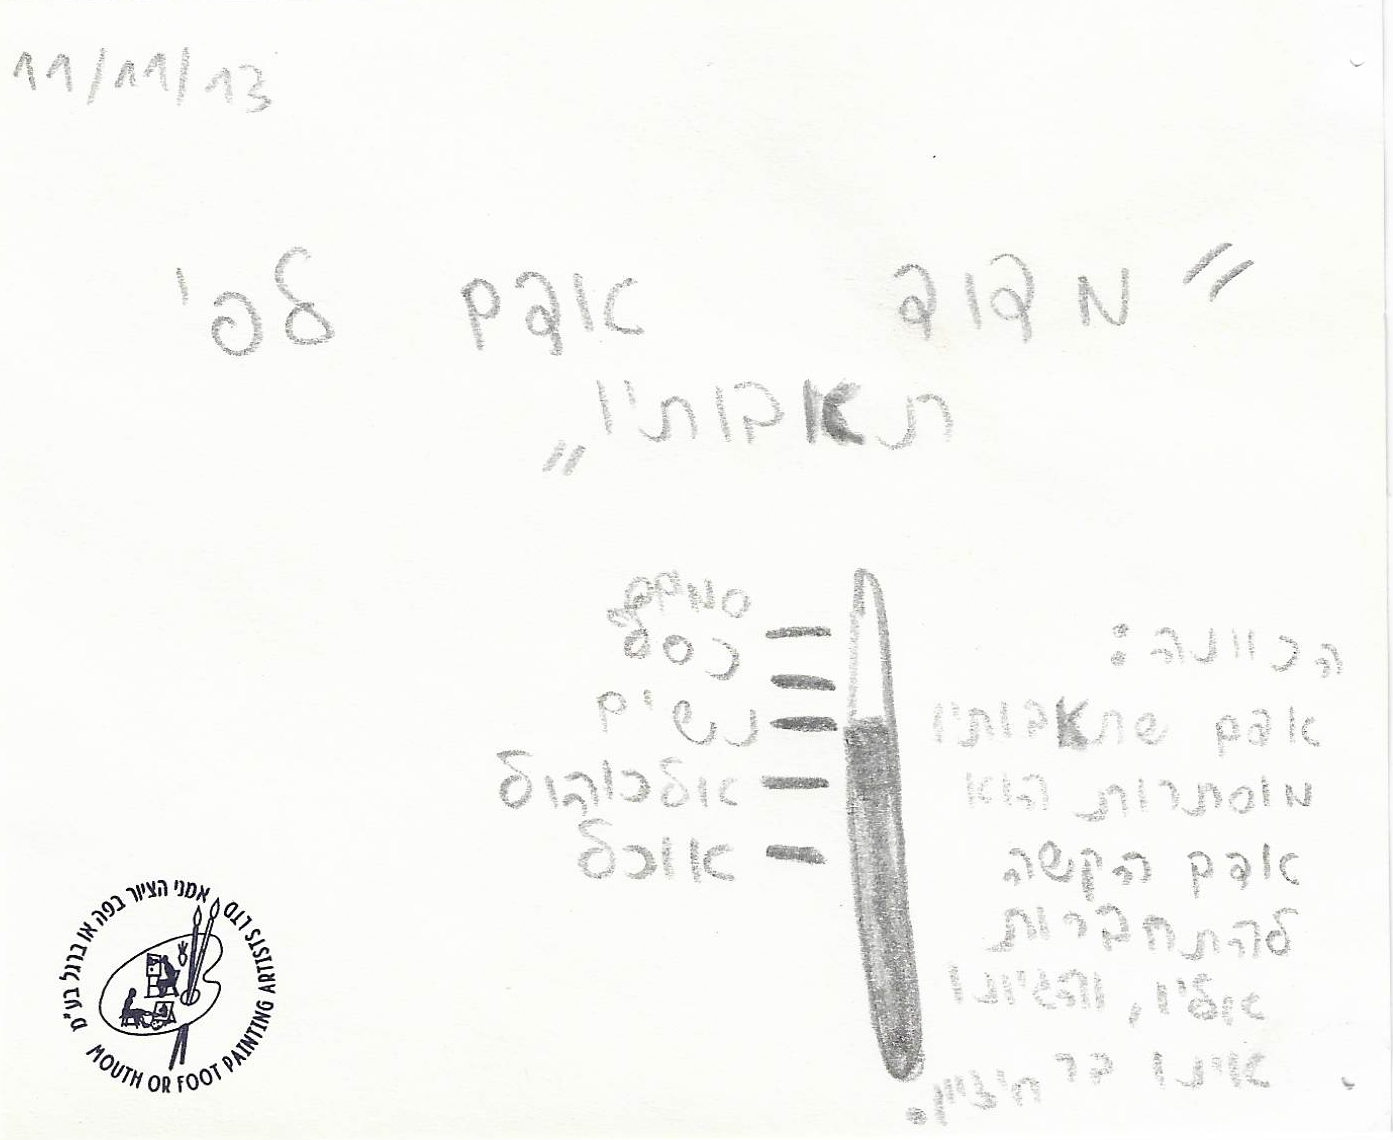 11/11/13
"מדוד אדם לפי
תאבותיו"
הכוונה:
אדם שתאבותיו
מוסתרות הוא
אדם הקשה
להתחברות
אליו, והגיונו
אינו בר
סמים
כסף
נשים
אלכוהול
אוכל
אמני הציור בפה או ברגל בע"מ
MOUTH OR FOOT PAINTING ARTISTS LTD